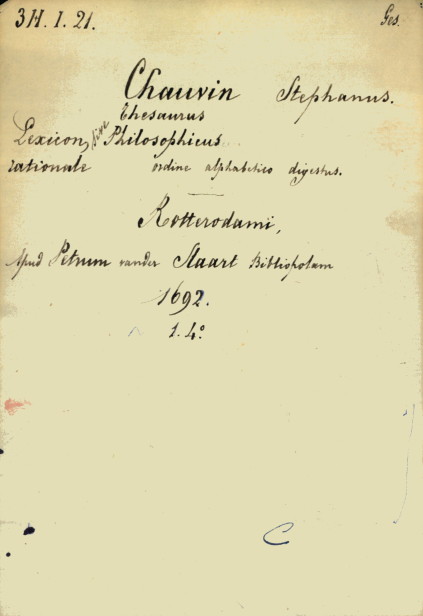 3H. I. 21. Ges.
Chauvin Stephanus.
Thesaurus
Lexicon, sive Philosophicus
rationale ordine alphabetico digestus.
Rotterodami,
Apud Petrum vander Slaart Bibliopolam
1692.
1. 4°
C